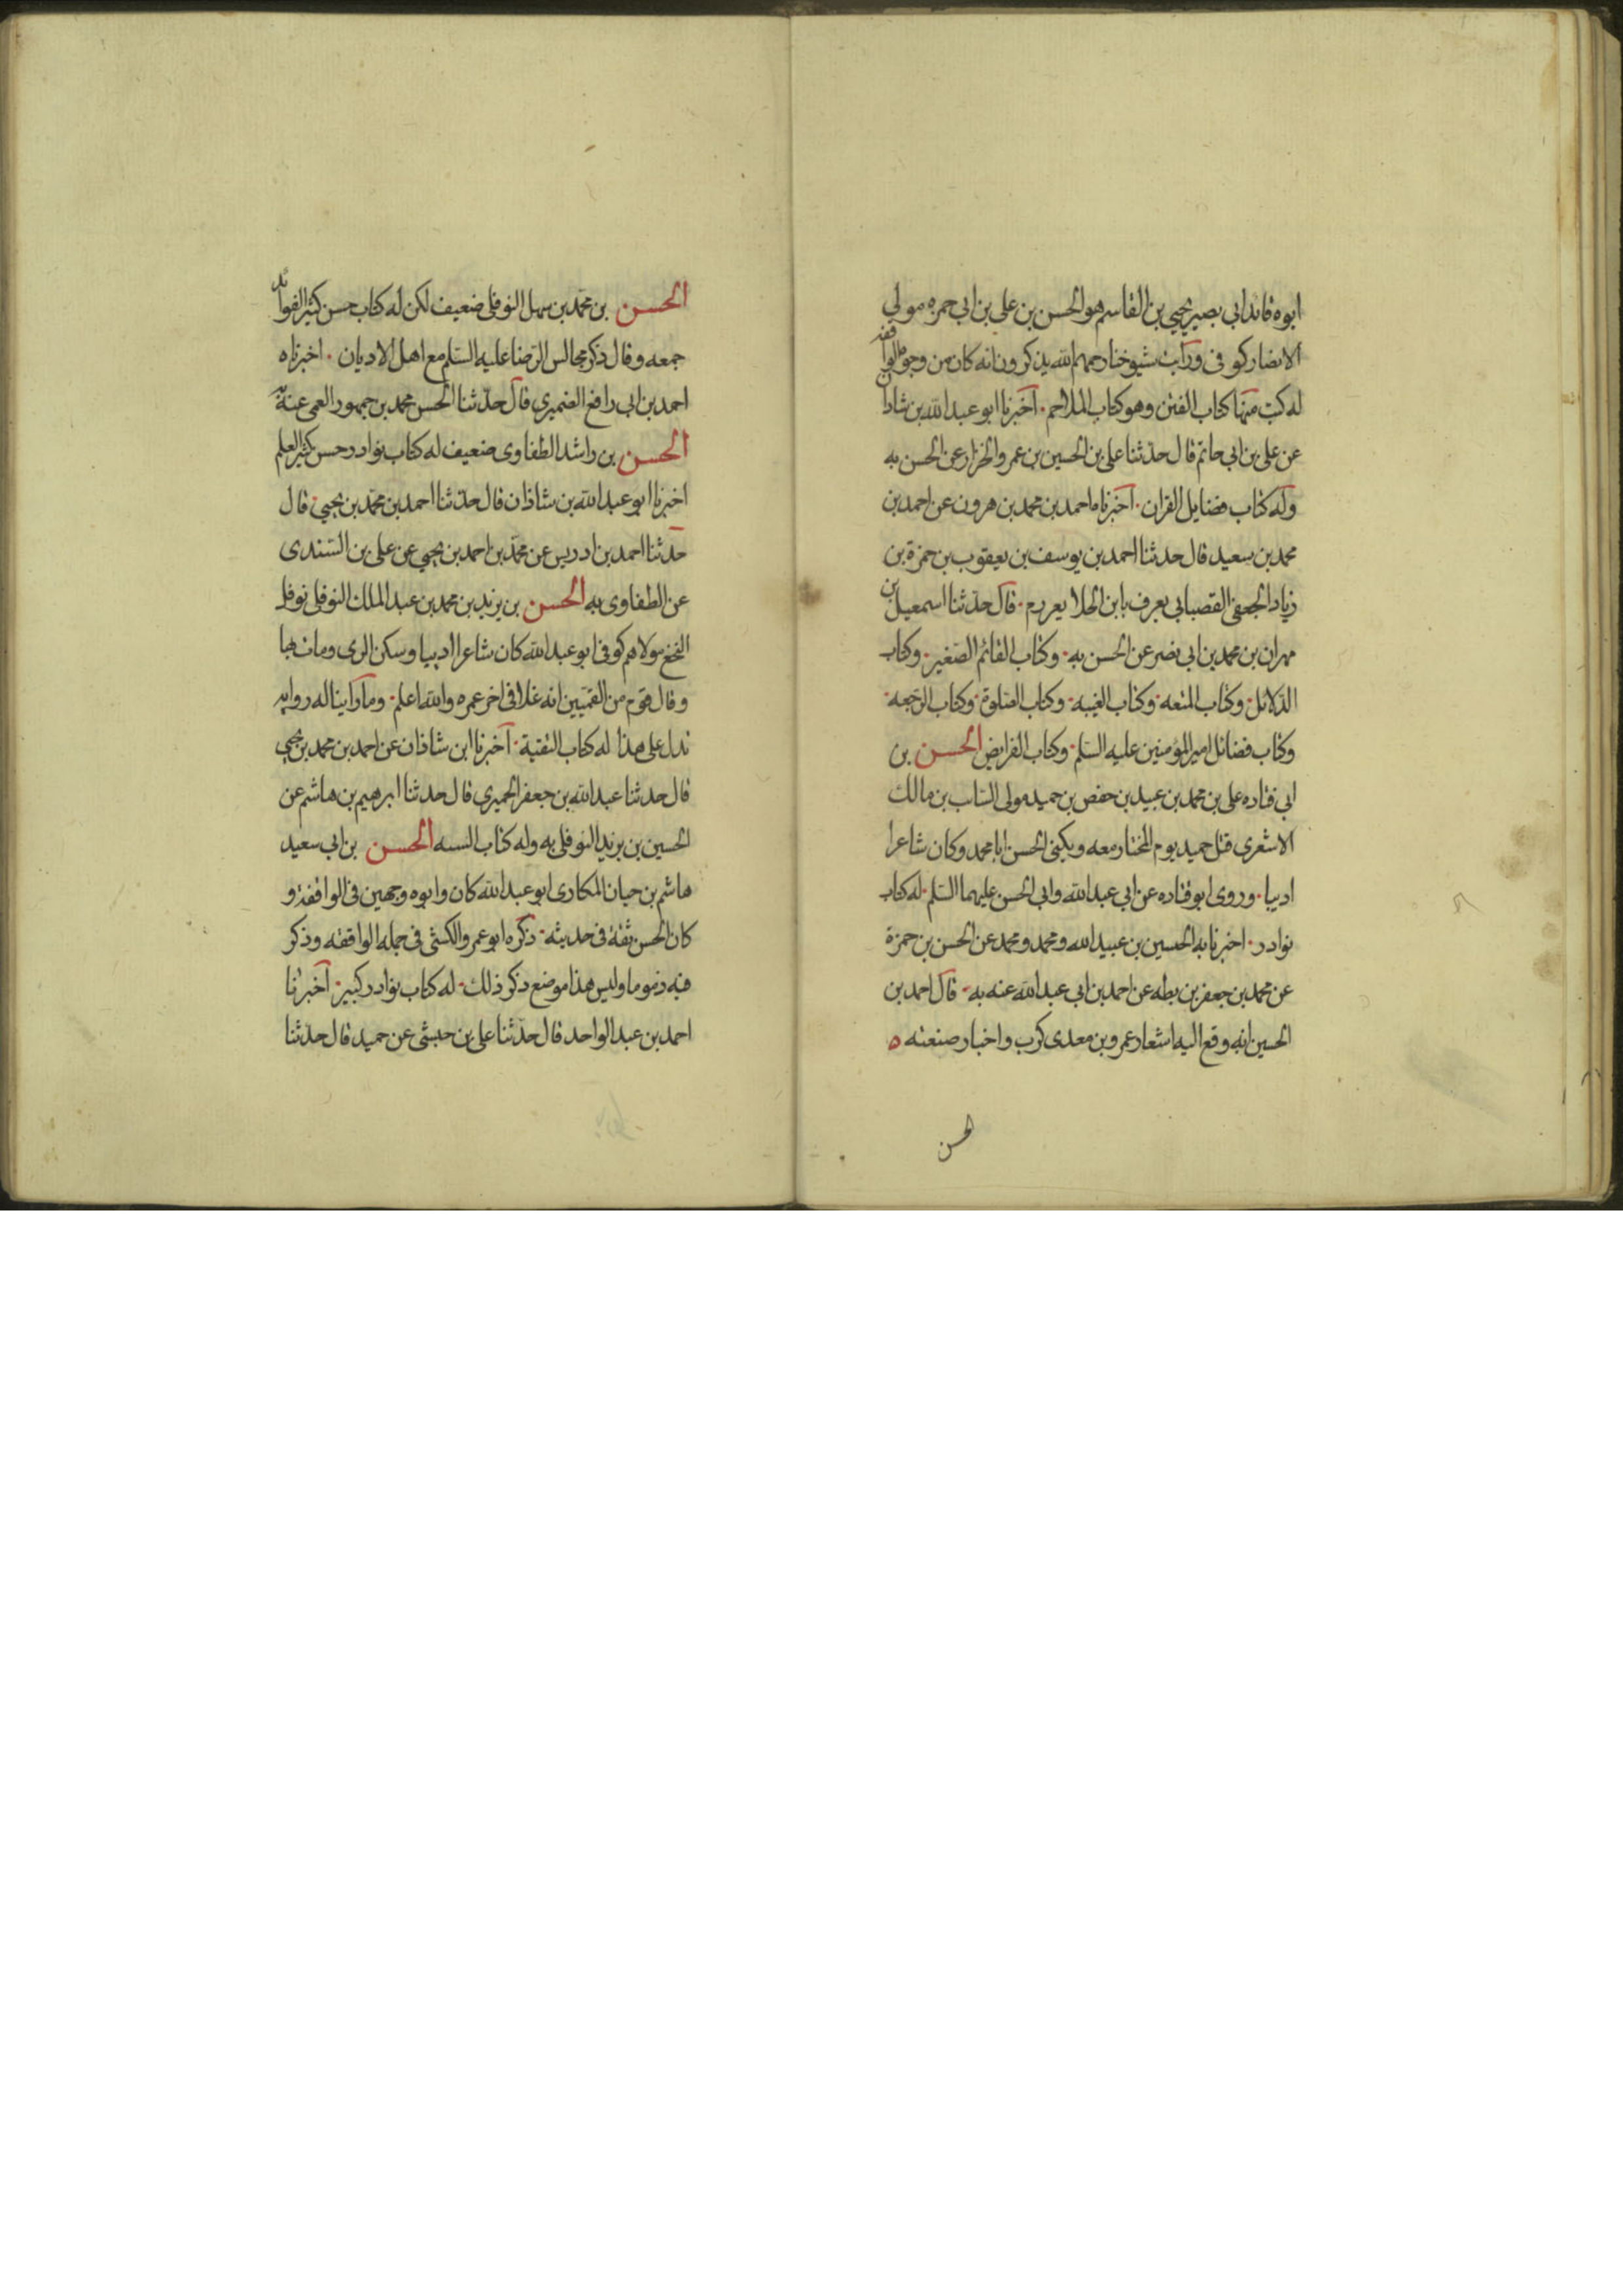 ابوه قائد ابي بصير يحيي بن القاسم هو الحسن بن علي بن ابي حمزه مولي
الانصار كوفي ورايت شيوخنا رحمهم الله يذكرون انه كان من وجوه الواقفه
له كتب منها كتاب الفتن وهو كتاب الملاحم اخبرنا ابو عبد الله بن شاذان
عن علي بن ابي حاتم قال حدثنا علي بن الحسين بن عمرو الخزاز عن الحسن به
وله كتاب فضايل القران اخبرناه احمد بن محمد بن هرون عن احمد بن
محمد بن سعيد قال حدثنا احمد بن يوسف بن يعقوب بن حمزة بن
زياد الجعفي القصباني يعرف بابن الجلا بعرزم قال حدّثنا اسمعيل بن
مهران بن محمد بن ابي نصر عن الحسن به وكتاب القائم الصّغير وكتاب
الدّلائل وكتاب المتعه وكتاب الغيبه وكتاب الصّلوة وكتاب الرّجعه
وكتاب فضائل امير المؤمنين عليه السّلم وكتاب الفرايض الحسن بن
ابي قتاده علي بن محمد بن عبيد بن حفص بن حميد مولي السّاب بن مالك
الاشعري قتل حميد يوم المختار معه ويكني الحسن ابا محمد وكان شاعرا
اديبا وروي ابو قتاده عن ابي عبد الله وابي الحسن عليهما السّلم له كتاب
نوادر اخبرنا به الحسين بن عبيد الله ومحمد ومحمد عن الحسن بن حمزة
عن محمد بن جعفر بن بطه عن احمد بن ابي عبد الله عنه به قال احمد بن
الحسين انه وقع اليه اشعار عمرو بن معدي كرب واخبار صنعته ه
الحسن
الحسن بن محمّد بن سهل النوفلي ضعيف لكن له كتاب حسن كثير الفوائد
جمعه وقال ذكر مجالس الرّضا عليه السّلم مع اهل الاديان اخبرناه
احمد بن ابي رافع الصيمري قال حدّثنا الحسن محمد بن جمهور العمي عنه به
الحسن بن راشد الطفاوي ضعيف له كتاب نوادر حسن كثير العلم
اخبرنا ابو عبد الله بن شاذان قال حدّثنا احمد بن محمّد بن يحيي قال
حدثنا احمد بن ادريس عن محمّد بن احمد بن يحيي عن علي بن السّندي
عن الطفاوي به الحسن بن يزيد بن محمد بن عبد الملك النوفلي نوفل
النخع مولاهم كوفي ابو عبد الله كان شاعرا اديبا وسكن الري ومات بها
وقال قوم من القمّيين انه غلا في اخر عمره والله اعلم وما راينا له روايه
تدل علي هذا له كتاب التقية اخبرنا ابن شاذان عن احمد بن محمد بن يحيي
قال حدثنا عبد الله بن جعفر الحميري قال حدثنا ابرهيم بن هاشم عن
الحسين بن يزيد النوفلي به وله كتاب السنه الحسن بن ابي سعيد
هاشم بن حيان المكاري ابو عبد الله كان وابوه وجهين في الواقفة و
كان الحسن ثقة في حديثه ذكره ابو عمرو الكشّي في جمله الواقفه وذكر
فيه ذموما وليس هذا موضع ذكر ذلك له كتاب نوادر كبير اخبرنا
احمد بن عبد الواحد قال حدّثنا علي بن حبشي عن حميد قال حدثنا